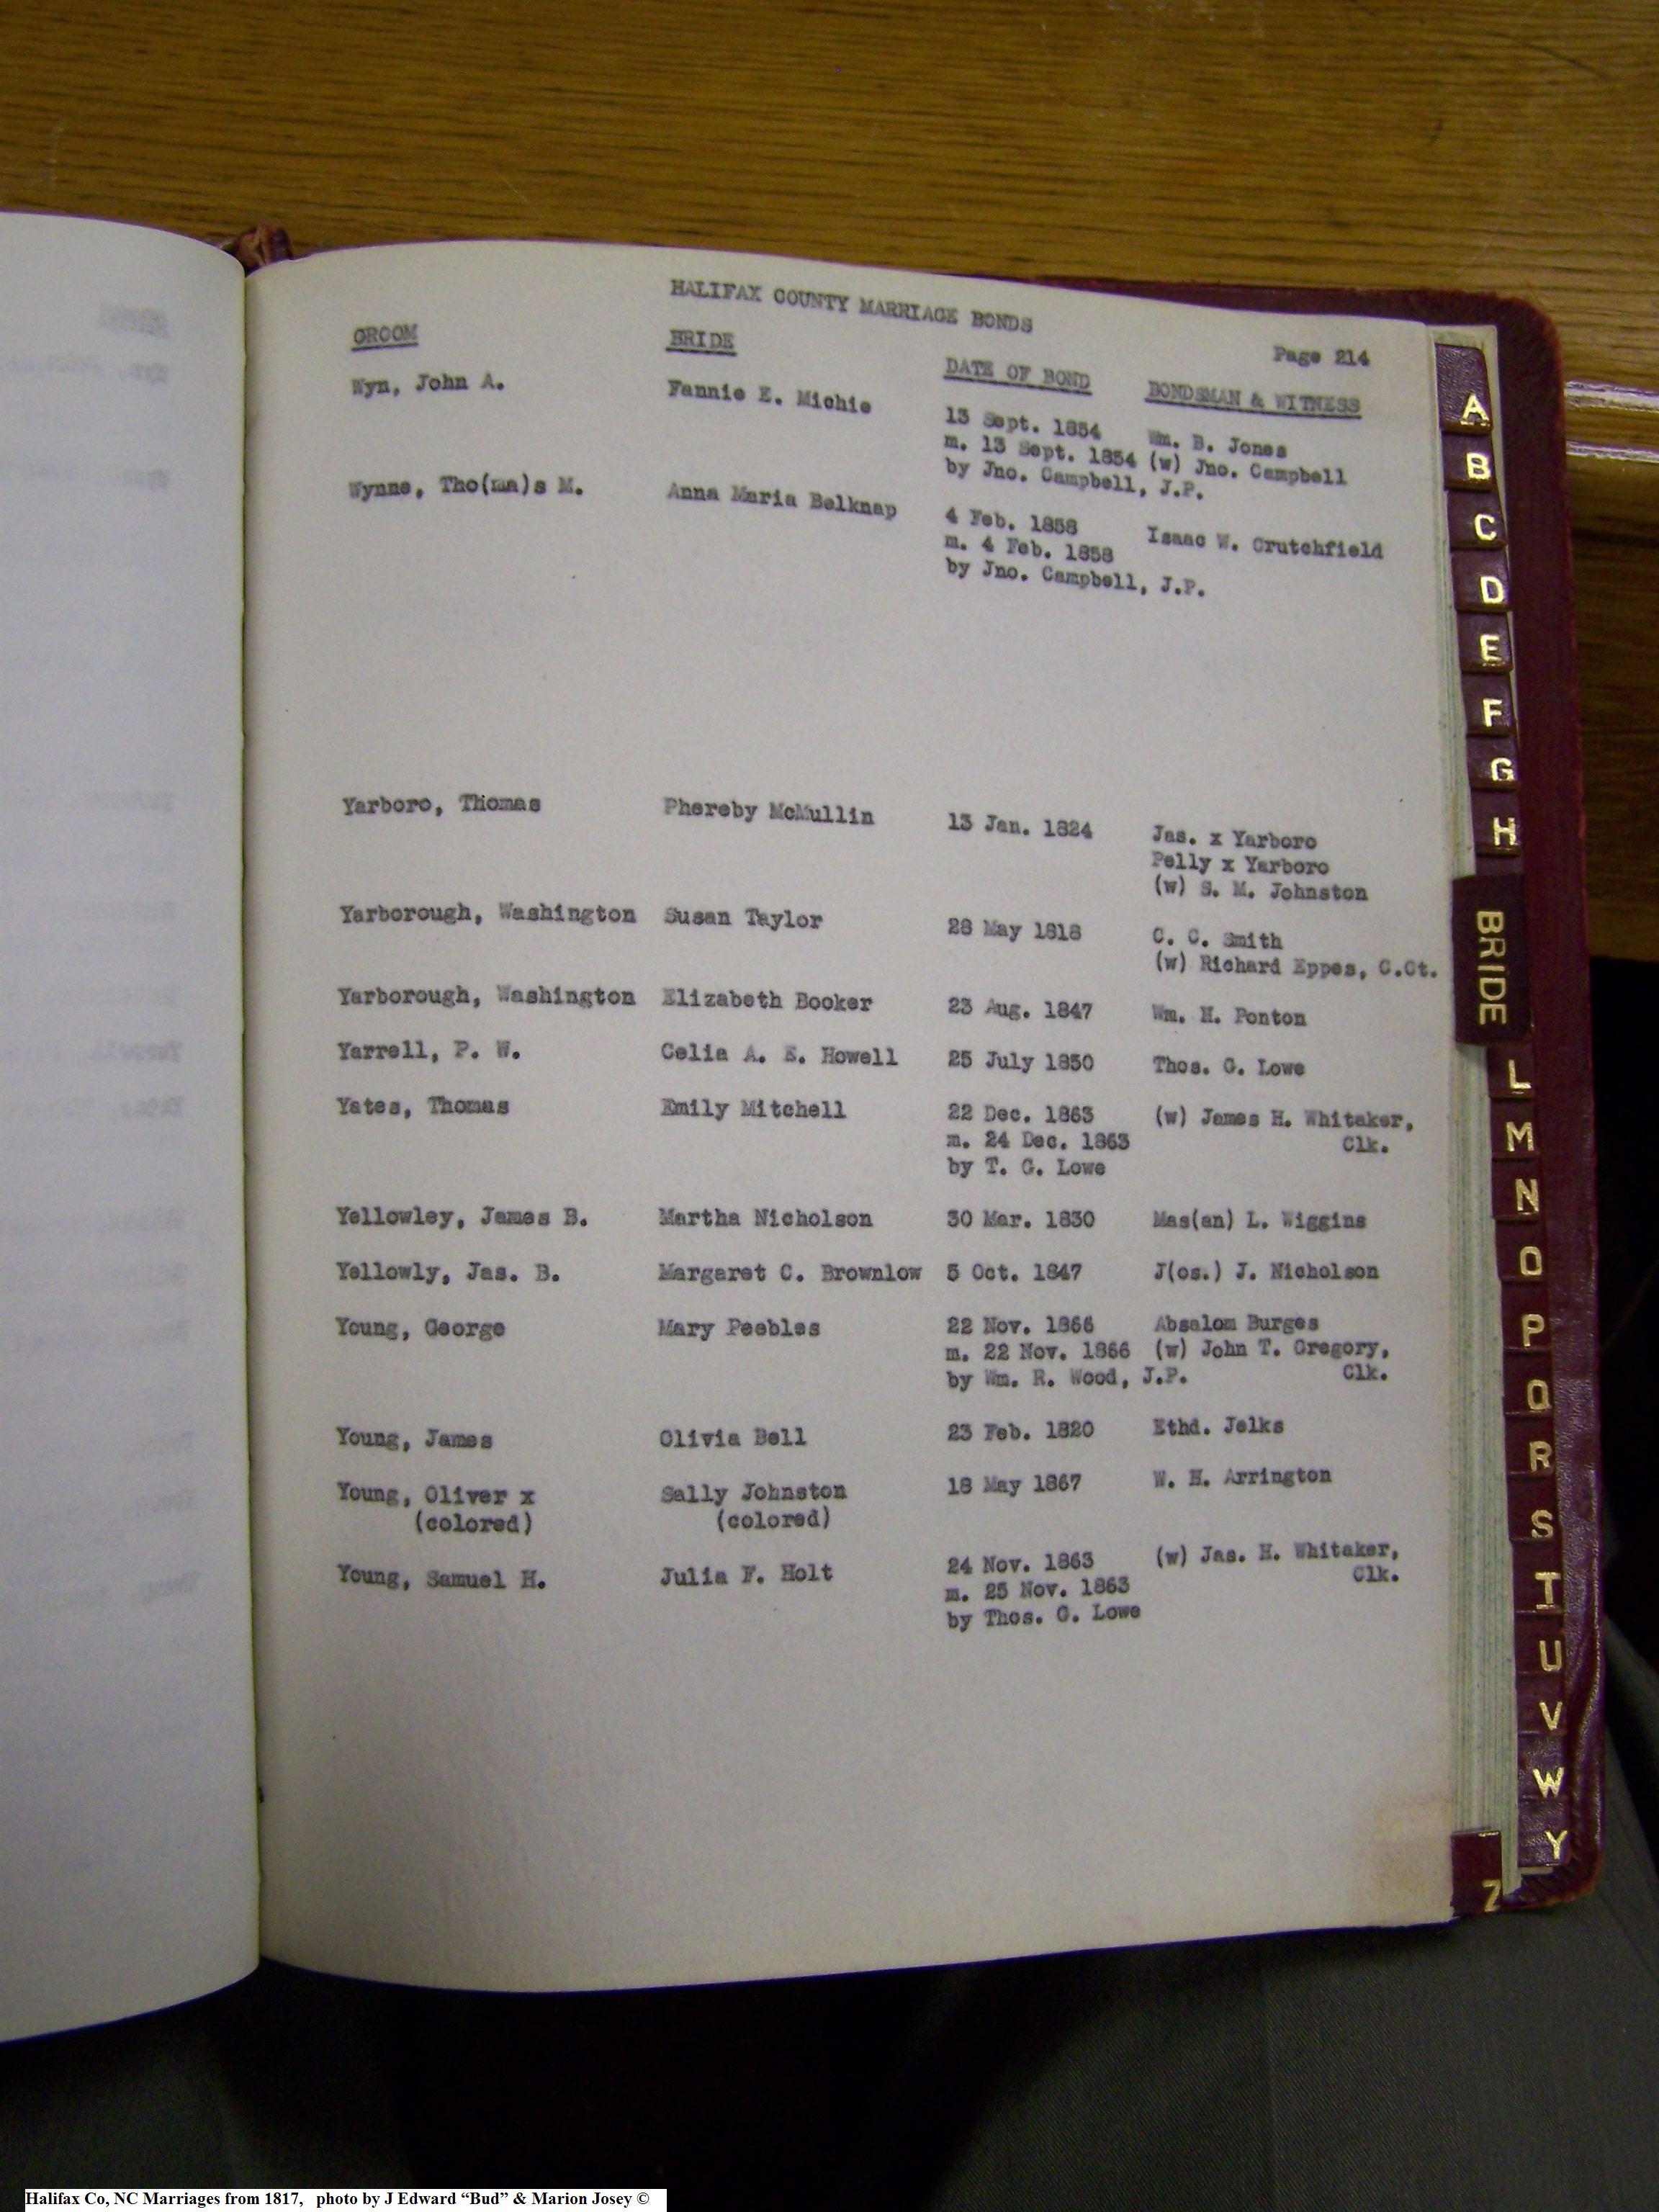 HALIFAX COUNTY MARRIAGE BONDS
Page 214
GROOM BRIDE DATE OF BOND BONDSMAN & WITNESS
Wyn, John A. Fannie E. Michie 13 Sept. 1854 Wm. B. Jones
m. 13 Sept. 1854 (w) Jno. Campbell
by Jno. Campbell, J.P.
Wynne, Tho(ma)s M. Anna Maria Belknap 4 Feb. 1858 Isaac W. Crutchfield
m. 4 Feb. 1858
by Jno. Campbell, J.P.
Yarboro, Thomas Phereby McMullin 13 Jan. 1824 Jas. x Yarboro
Pelly x Yarboro
(w) S. M. Johnston
Yarborough, Washington Susan Taylor 28 May 1818 C. C. Smith
(w) Richard Eppes, C.Ct.
Yarborough, Washington Elizabeth Booker 23 Aug. 1847 Wm. H. Ponton
Yarrell, P. W. Celia A. E. Howell 25 July 1850 Thos. G. Lowe
Yates, Thomas Emily Mitchell 22 Dec. 1863 (w) James H. Whitaker,
m. 24 Dec. 1863 Clk.
by T. G. Lowe
Yellowley, James B. Martha Nicholson 30 Mar. 1830 Mas(an) L. Wiggins
Yellowly, Jas. B. Margaret C. Brownlow 5 Oct. 1847 J(os.) J. Nicholson
Young, George Mary Peebles 22 Nov. 1866 Absalom Burges
m. 22 Nov. 1866 (w) John T. Gregory,
by Wm. R. Wood, J.P. Clk.
Young, James Olivia Bell 23 Feb. 1820 Ethd. Jelks
Young, Oliver x Sally Johnston 18 May 1867 W. H. Arrington
(colored) (colored)
Young, Samuel H. Julia F. Holt 24 Nov. 1863 (w) Jas. H. Whitaker,
m. 25 Nov. 1863 Clk.
by Thos. G. Lowe
A
B
C
D
E
F
G
H
BRIDE
L
M
N
O
P
Q
R
S
T
U
V
W
Y
Z
Halifax Co, NC Marriages from 1817, photo by J Edward “Bud” & Marion Josey ©